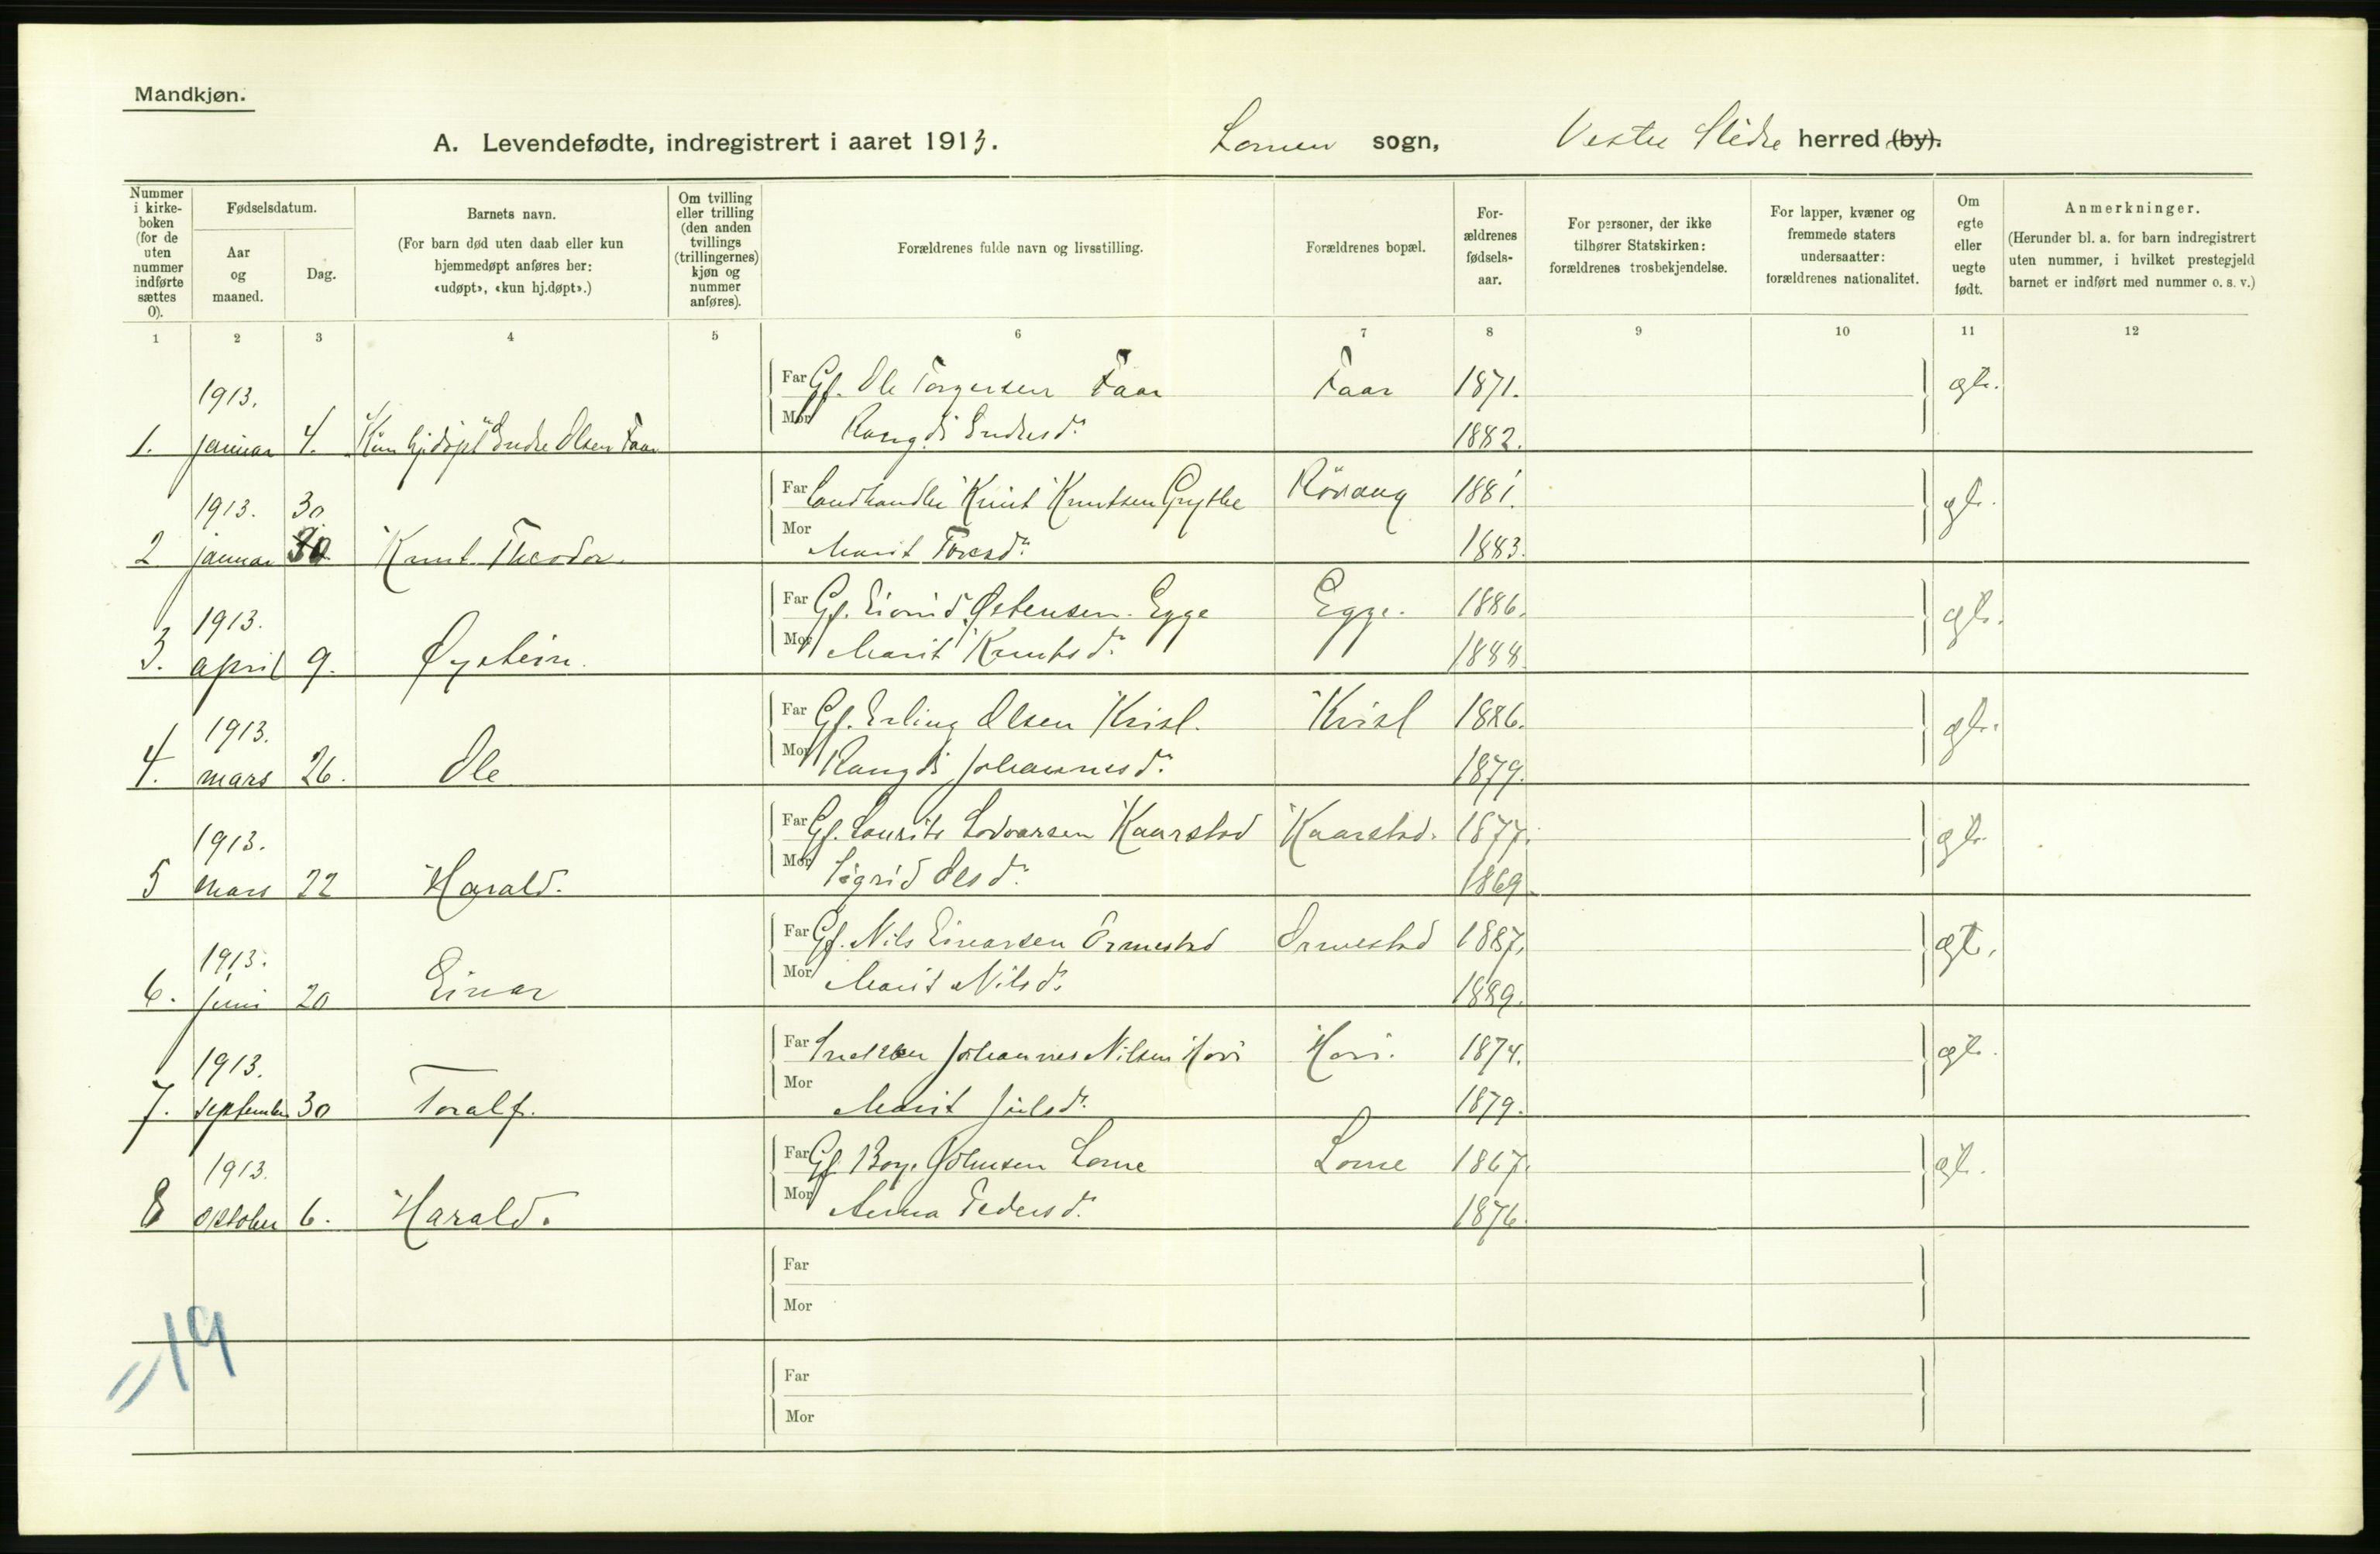 Mandkjøn.
A. Levendefødte, indregistrert i aaret 1913. Lomen sogn, Vestre Slidre herred (by).
Nummer i kirkeboken (for de uten nummer indførte sættes 0).
Fødselsdatum.
Aar og maaned.
Dag.
Barnets navn.
(For barn død uten daab eller kun hjemmedøpt anføres her: «udøpt», «kun hj.døpt».)
Om tvilling eller trilling (den anden tvillings (trillingernes) kjøn og nummer anføres).
Forældrenes fulde navn og livsstilling.
Forældrenes bopæl.
Forældrenes fødselsaar.
For personer, der ikke tilhører Statskirken: forældrenes trosbekjendelse.
For lapper, kvæner og fremmede staters undersaatter: forældrenes nationalitet.
Om egte eller uegte født.
Anmerkninger.
(Herunder bl. a. for barn indregistrert uten nummer, i hvilket prestegjeld barnet er indført med nummer o. s. v.)
1 2 3 4 5 6 7 8 9 10 11 12
1913. Far Gf. Ole Torgersen Faar Faar 1871. gt.
1. januar 4. "Kun hjdöpt" Endre Olsen Faar Mor Rangdi Endresdr. 1882.
1913. 30 Far Landhandler Knut Knutsen Grythe 1881. gt.
2 januar 30 Knut Theodor. Mor Marit Toresdr. 1883.
1913. Far Gf. Eivind Østensen Egge Egge. 1886. gt.
3. april 9. Øystein. Mor Marit Knutsdr. 1888.
1913. Far Gf. Erling Olsen Kvisl. Kvisl 1886. gt.
4. mars 26. Ole Mor Rangdi Johannesdr. 1879.
1913. Far Gf. Laurits Lodvarsen Kaarstad Kaarstad. 1877. gt.
5 mars 22 Harald. Mor Sigrid Olsdr. 1869.
1913. Far Gf. Nils Einarsen Ormestad Ormestad 1887. gt.
6. juni 20 Einar Mor Marit Nilsdr. 1889.
1913. Far Snekker Johannes Nilsen Hovi Hovi. 1874. gt.
7. september 30 Toralf. Mor Marit Julsdr. 1879.
1913. Far Gf. Lome Lome 1867. gt.
8 oktober 6. Harald. Mor Anna Pedersdr. 1876.
Far
Mor
= 19
Far
Mor